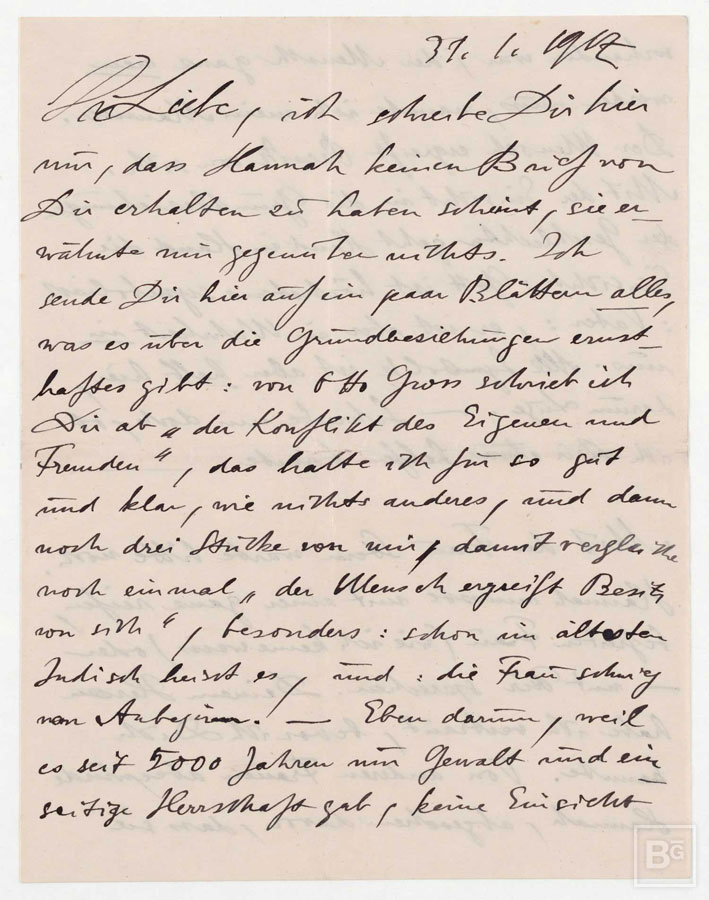 31. 1. 1917
Du Liebe, ich schreibe Dir hier
nur, dass Hannah keinen Brief von
Dir erhalten zu haben scheint, sie er-
wähnte mir gegenüber nichts. Ich
sende Dir hier auf ein paar Blättern alles,
was es über die Grundbeziehungen ernst-
haftes gibt: von Otto Gross schrieb ich
Dir ab „der Konflikt des Eigenen und
Fremden“, das halte ich für so gut
und klar, wie nichts anderes, und dann
noch drei Stücke von mir, damit vergleiche
noch einmal „der Mensch ergreift Besitz
von sich“, besonders: schon im ältesten
Indisch heisst es, und: die Frau schwieg
von Anbeginn. — Eben darum, weil
es seit 5000 Jahren nur Gewalt und ein-
seitige Herrschaft gab, keine Einsicht
BG